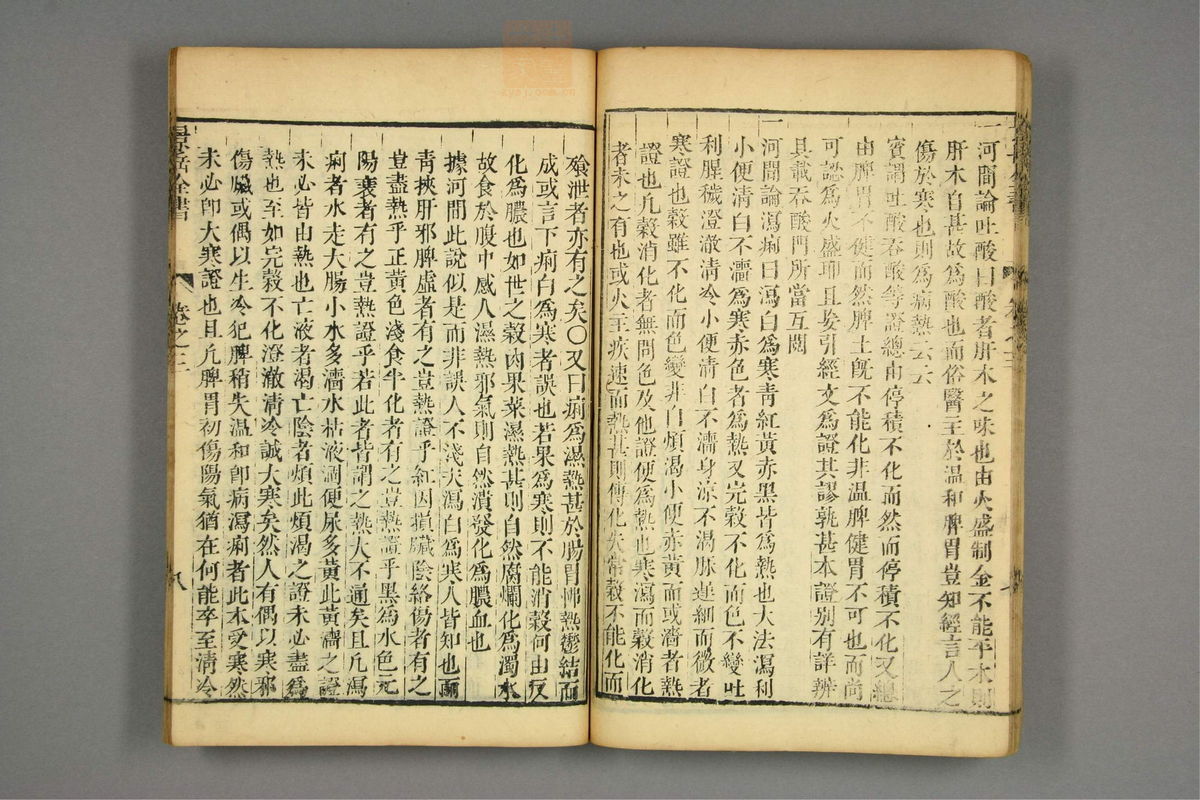 一河間論吐酸曰酸者肝木之味也由火盛制金不能平木則
肝木自甚故為酸也而俗醫主於温和脾胃豈知經言人之
傷於寒也則為病熱云云
賓謂吐酸吞酸等證總由停積不化而然而停積不化又總
由脾胃不健而然脾土既不能化非温脾健胃不可也而尚
可認為火盛耶且妄引經文為證其謬孰甚本證别有詳辨
具載吞酸門所當互閱
一河間論瀉痢曰瀉白為寒青紅黄赤黑皆為熱也大法瀉利
小便清白不濇為寒赤色者為熱又完穀不化而色不變吐
利腥穢澄澈清冷小便清白不濇身凉不渴脉遲細而微者
寒證也穀雖不化而色變非白煩渴小便赤黄而或濇者熱
證也凡穀消化者無問色及他證便為熱也寒瀉而穀消化
者未之有也或火主疾速而熱甚則傳化失常穀不能化而
飱泄者亦有之矣〇又曰痢為濕熱甚於腸胃怫熱鬱結而
成或言下痢白為寒者誤也若果為寒則不能消穀何由反
化為膿也如世之穀肉果菜濕熱甚則自然腐爛化為濁水
故食於腹中感人濕熱邪氣則自然潰發化為膿血也
據河間此說似是而非誤人不淺夫瀉白為寒人皆知也而
青挾肝邪脾虛者有之豈熱證乎紅因損臟陰絡傷者有之
豈盡熱乎正黄色淺食半化者有之豈熱證乎黑為水色元
陽衰者有之豈熱證乎若此者皆謂之熱大不通矣且凡瀉
痢者水走大腸小水多濇水枯液涸便尿多黄此黄濇之證
未必皆由熱也亡液者渴亡陰者煩此煩渴之證未必盡為
熱也至如完穀不化澄澈清冷誠大寒矣然人有偶以寒邪
傷臟或偶以生冷犯脾稍失温和即病瀉痢者此本受寒然
未必即大寒證也且凡脾胃初傷陽氣猶在何能卒至清冷
景岳全書
卷之三
八